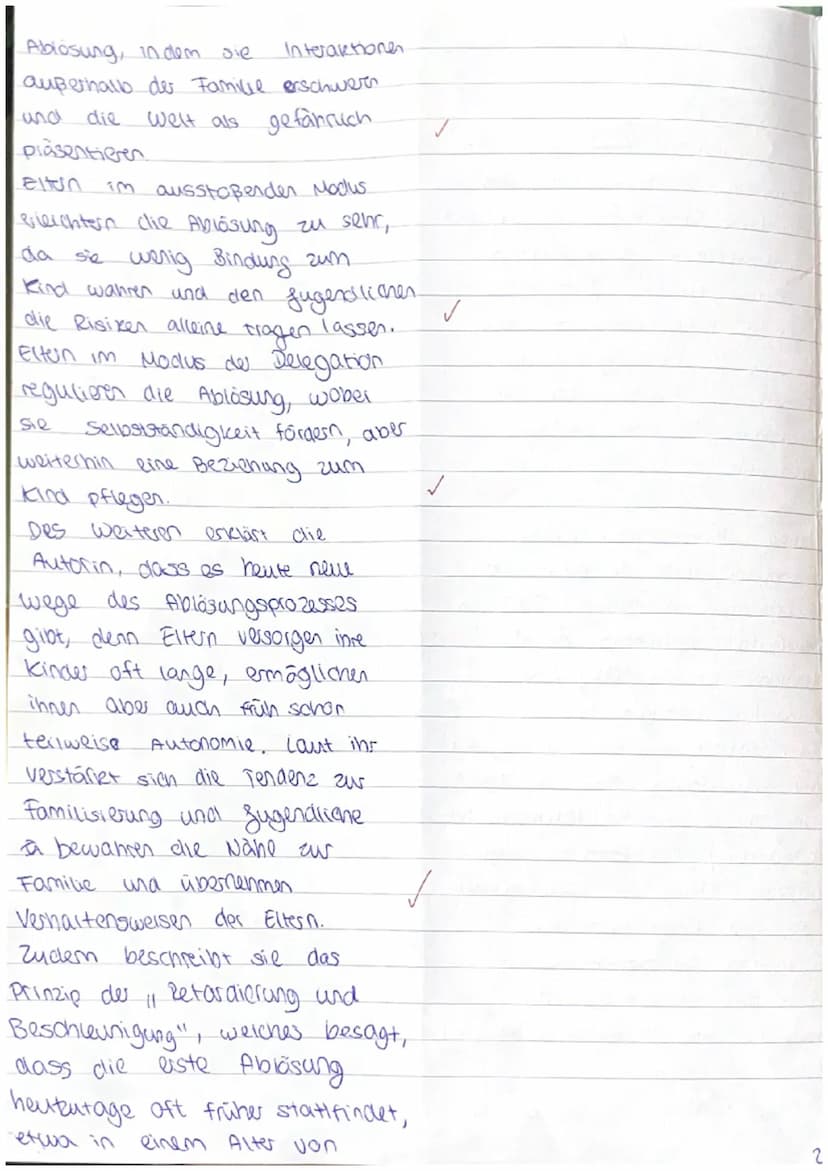 Ablösung, indem sie Interaktionen
außerhalb der Familie erschwern
und die Welt als gefährlich
präsentieren.
Eltern im ausstoßenden Modus
erleichtern die Ablösung zu sehr,
da sie wenig Bindung zum
Kind wahren und den Jugendlichen
die Risiken alleine tragen lassen.
Eltern im Modus der Delegation
regulieren die Ablösung, wobei
sie Selbstständigkeit fördern, aber
weiterhin eine Beziehung zum
Kind pflegen.
Des Weiteren erklärt die
Autorin, dass es heute neue
Wege des Ablösungsprozesses
gibt, denn Eltern versorgen ihre
Kinder oft lange, ermöglichen
ihnen aber auch früh schon
teilweise Autonomie. Laut ihr
verstärkt sich die Tendenz zur
Familisierung und Jugendliche
bewahren die Nähe zur
Familie und übernehmen
Verhaltensweisen der Eltern.
Zudem beschreibt sie das
Prinzip der „Retardierung und
Beschleunigung", welches besagt,
dass die erste Ablösung
heutzutage oft früher stattfindet,
etwa in einem Alter von
2